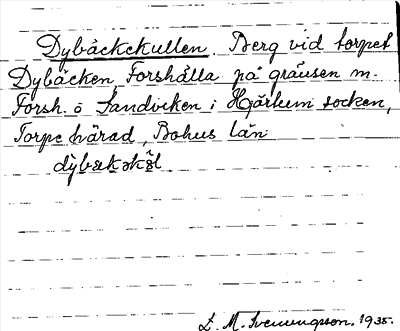 Dybäckekullen. Berg vid torpet
Dybäcken, Forshälla på gränsen m.
Forsh. o Sandviken i Hjärtum socken,
Torpe härad, Bohus län
L. M. Svenungsson. 1935.